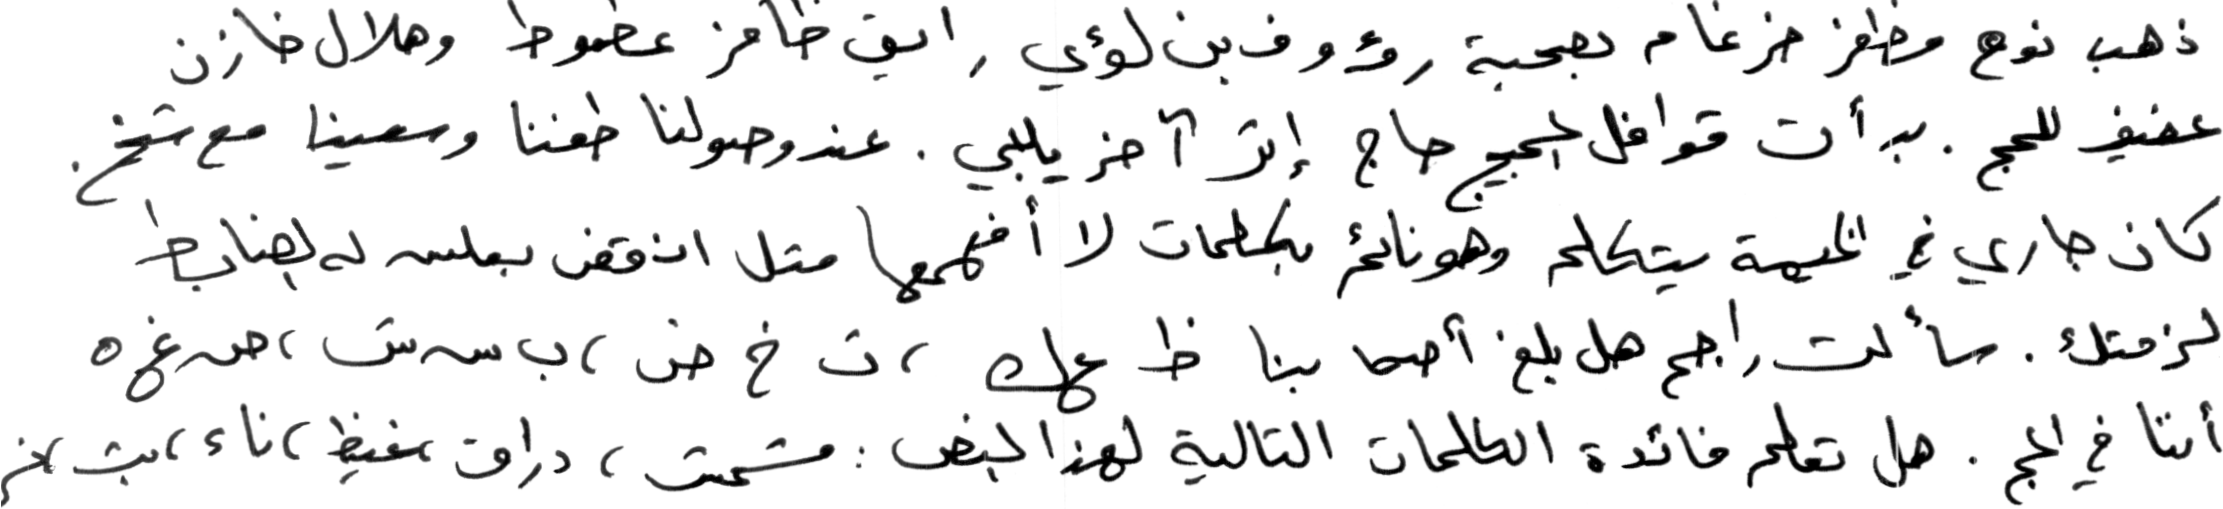 ذهب نوح مظفر ضرغام بصحبة رؤوف بن لؤي رايق ظافر عضوط وهلال خازن
عفيف للحج . بدأت قوافل الحجيج حاج إثر آخر يلبي . عند وصولنا طفنا وسعينا مع شيخ .
كان جاري في الخيمة يتكلم وهو نائم بكلمات لا أفهمها مثل انفقض بعلس له لضابط
لزمتك . سألت راجح هل بلغ أصحابنا ظ عهك ، ث خ ض ، ب س ش ، ص غ ه
أننا في الحج . هل تعلم فائدة الكلمات التالية لهذا النص : مشمش ، دراق ، غيظ ، ناء ، بث ،